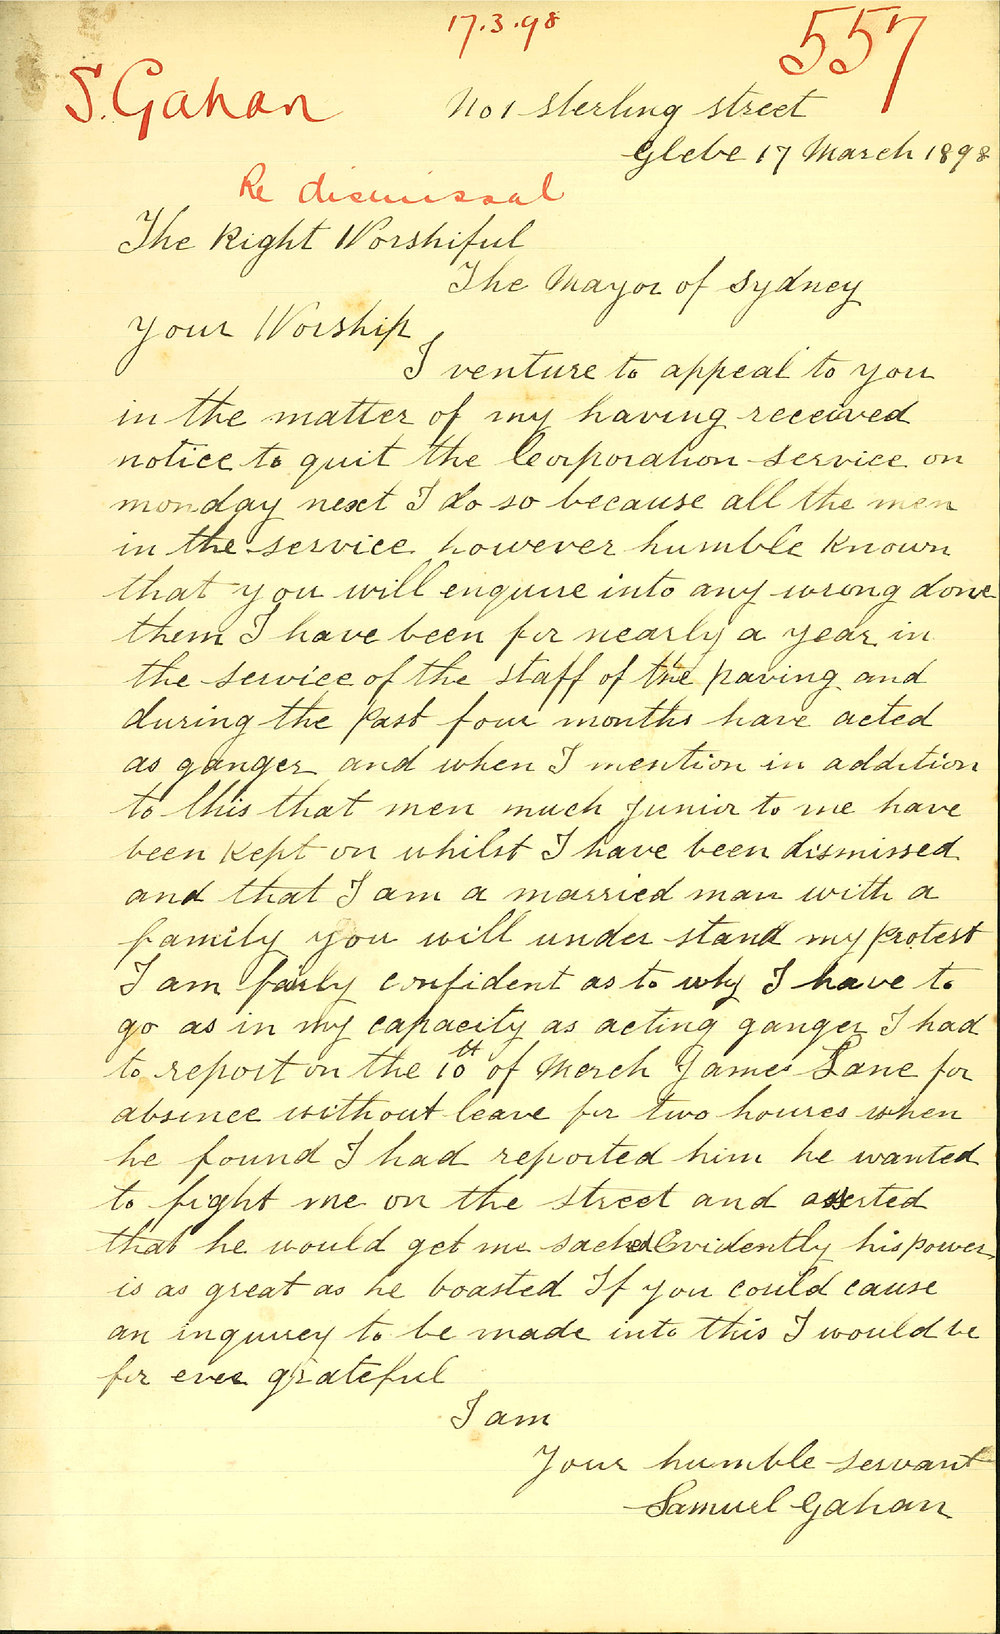 17.3.98
557
S. Gahan
No 1 Sterling Street
Glebe 17 March 1898
Re dismissal
The Right Worshiful
The Mayor of Sydney
Your Worship
I venture to appeal to you
in the matter of my having received
notice to quit the Corporation service on
monday next I do so because all the men
in the service however humble known
that you will enquire into any wrong done
them I have been for nearly a year in
the service of the staff of the paving and
during the past four months have acted
as ganger and when I mention in addition
to this that men much junior to me have
been kept on whilst I have been dismissed
and that I am a married man with a
family you will under stand my protest
I am fairly confident as to why I have to
go as in my capacity as acting ganger I had
to report on the 10th of March James Lane for
absence without leave for two houres when
he found I had reported him he wanted
to fight me on the street and asserted
that he would get me sacked Evidently his power
is as great as he boasted If you could cause
an inquirey to be made into this I would be
for ever grateful
I am
Your humble servant
Samuel Gahan